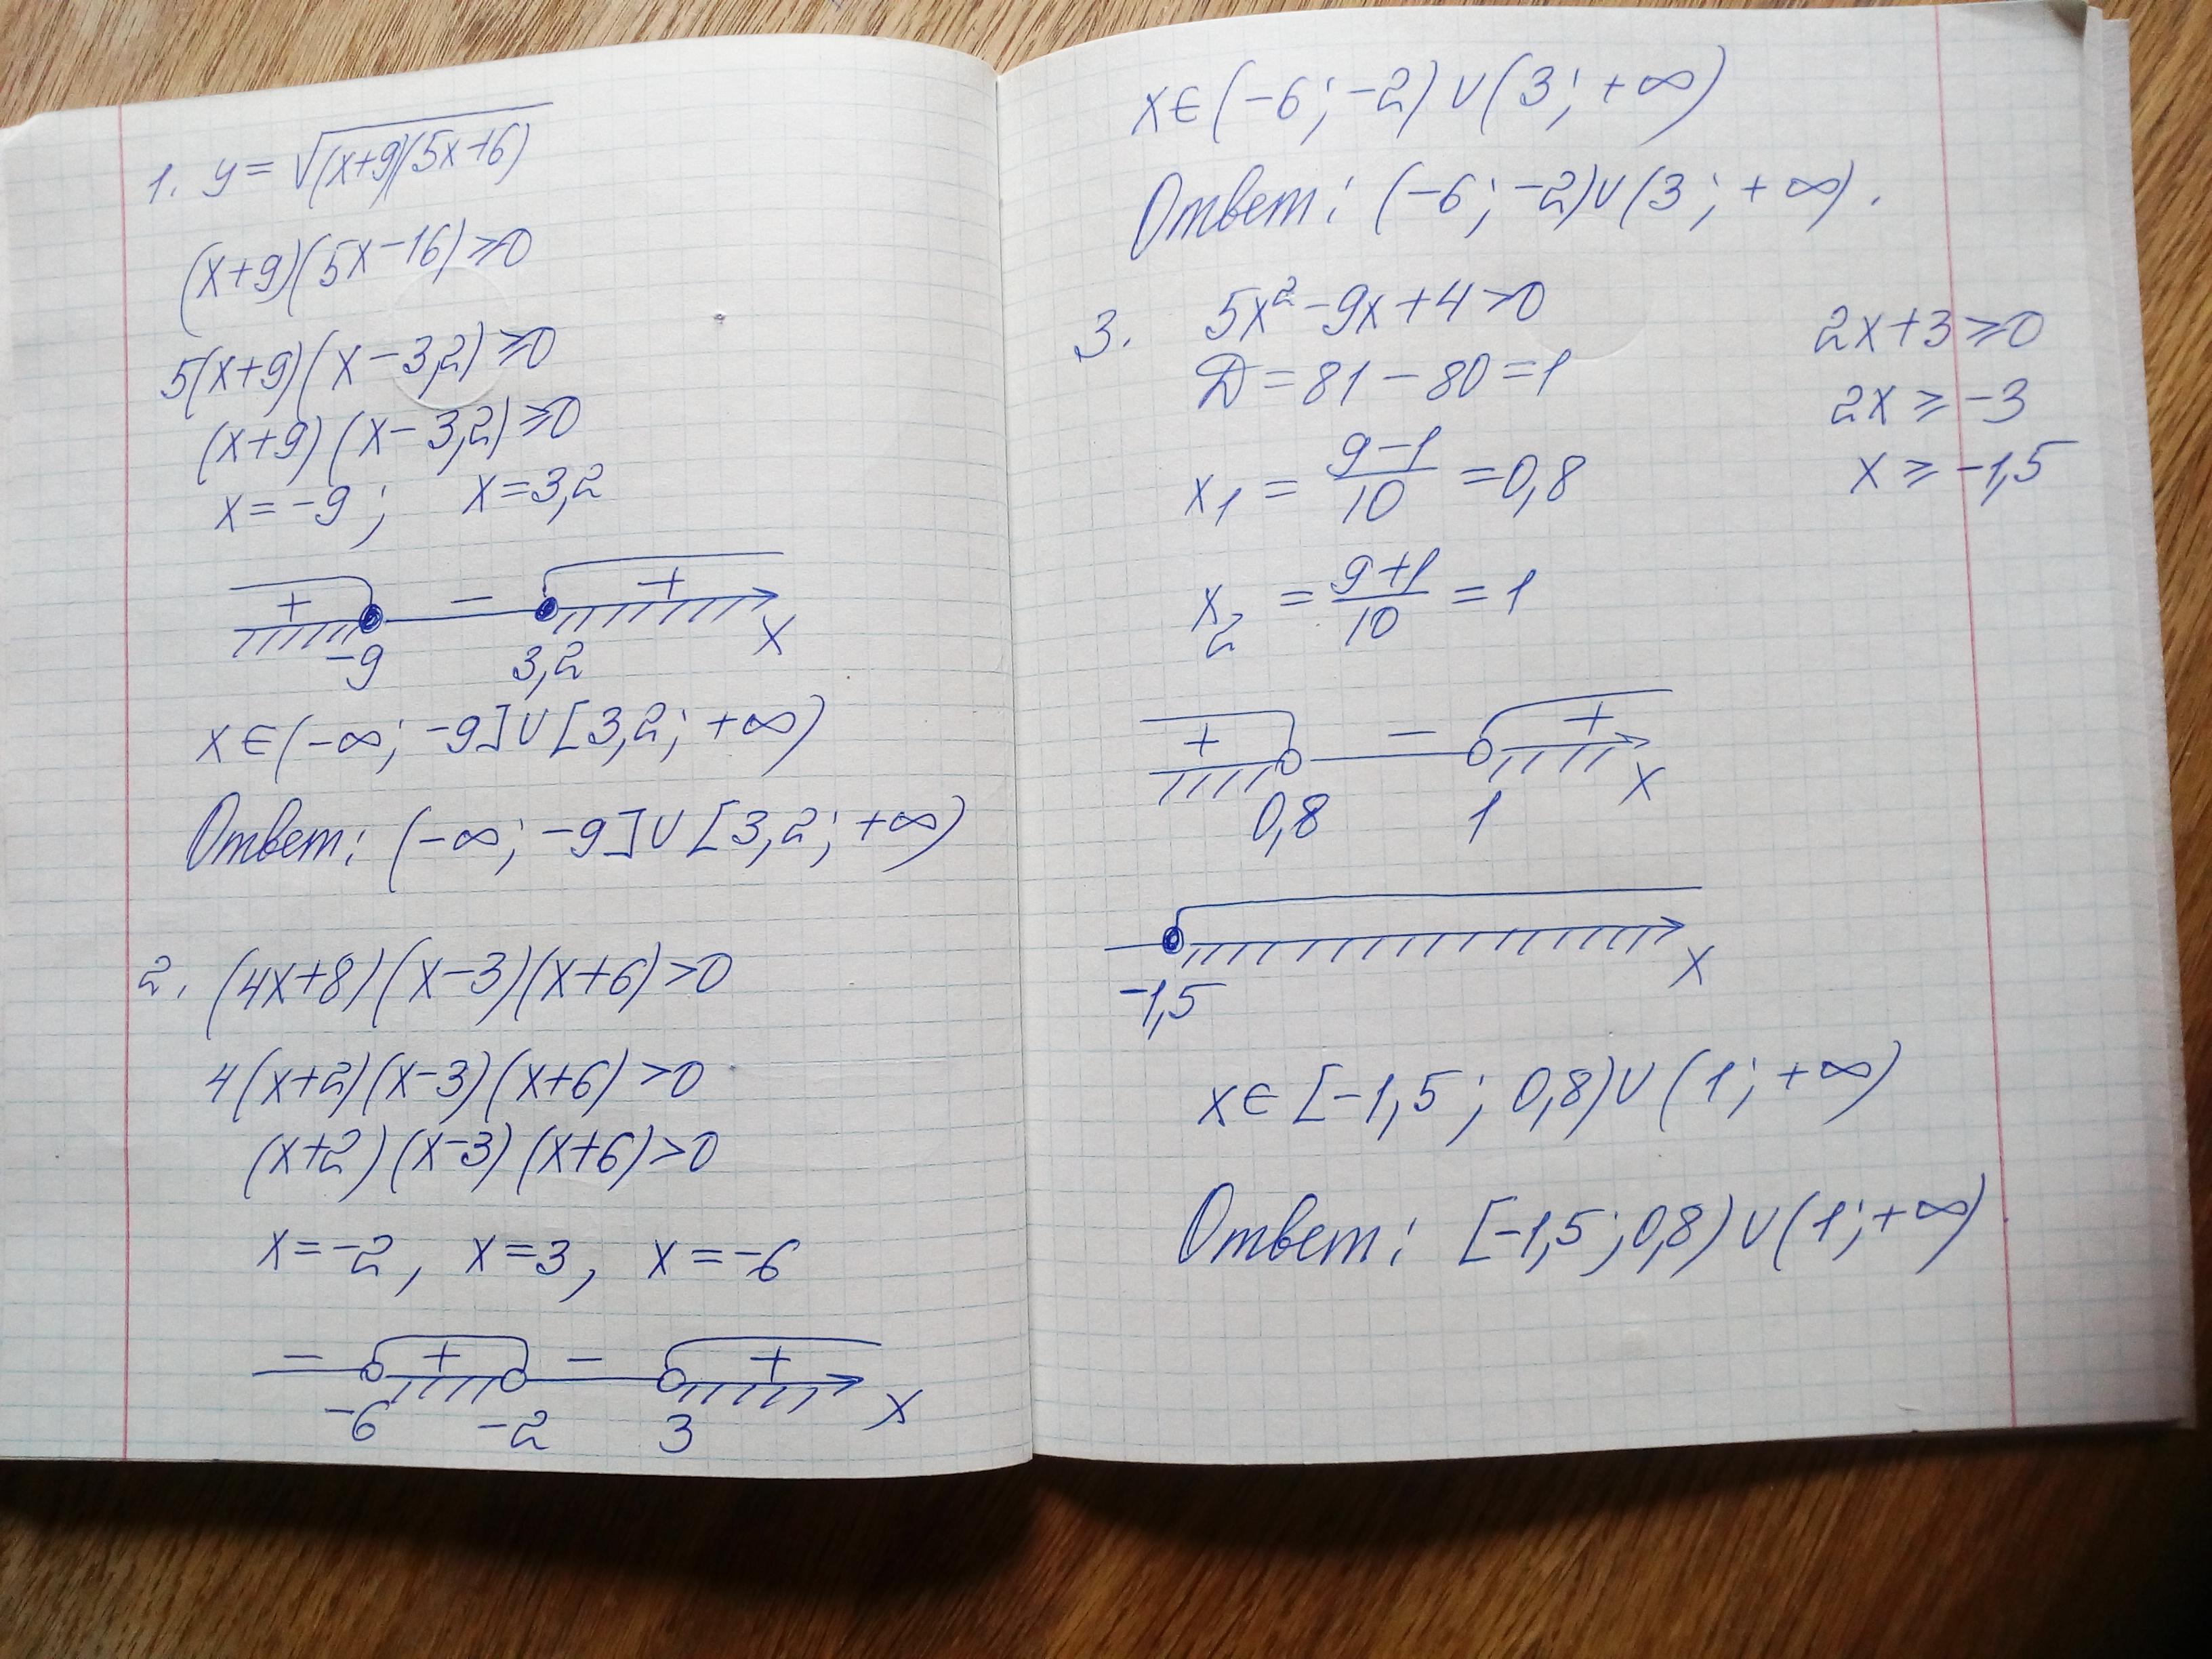 1. y = √(x+9)(5x+6)
(x+9)(5x−16)≥0
5(x+9)(x−3,2)≥0
(x+9)(x−3,2)≥0
x=−9; x=3,2
+ − +
−9 3,2 x
x∈(−∞; −9]∪[3,2; +∞)
Ответ: (−∞; −9]∪[3,2; +∞)
2. (4x+8)(x−3)(x+6)>0
4(x+2)(x−3)(x+6)>0
(x+2)(x−3)(x+6)>0
x=−2, x=3, x=−6
− + − +
−6 −2 3 x
x∈(−6; −2)∪(3; +∞)
Ответ: (−6; −2)∪(3; +∞).
3. 5x²−9x+4>0
D=81−80=1
x₁ = (9−1)/10 = 0,8
x₂ = (9+1)/10 = 1
2x+3≥0
2x≥−3
x≥−1,5
+ − +
0,8 1 x
−1,5 x
x∈[−1,5; 0,8)∪(1; +∞)
Ответ: [−1,5; 0,8)∪(1; +∞)